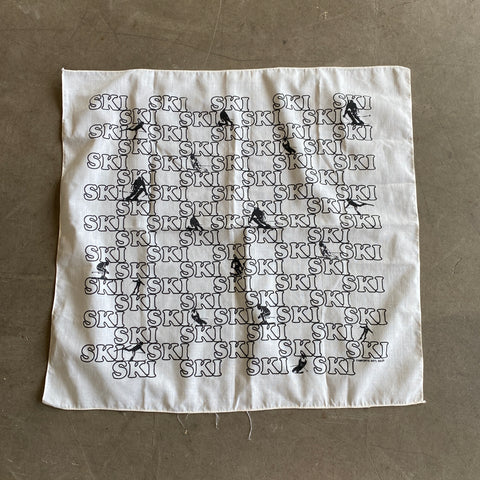 SKI SKI SKI SKI SKI
SKI SKI SKI SKI
SKI SKI SKI SKI SKI
SKI SKI SKI SKI
SKI SKI SKI SKI SKI
SKI SKI SKI SKI
SKI SKI SKI SKI SKI
SKI SKI SKI SKI
SKI SKI SKI SKI SKI
SKI SKI SKI SKI
SKI SKI SKI SKI SKI
SKI SKI SKI SKI
SKI SKI SKI SKI SKI
SKI SKI SKI SKI
SKI SKI SKI SKI SKI
SKI SKI SKI SKI
SKI SKI SKI SKI SKI
SKI SKI SKI SKI